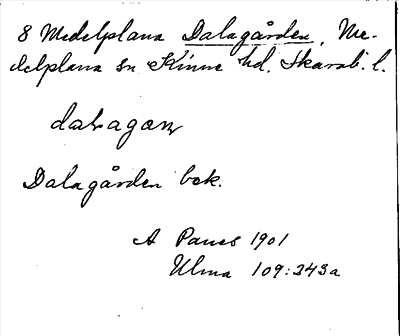 8 Medelplana Dalagården, Me-
delplana sn Kinne hd. Skarab. l.
Dalagården bok.
A Palus 1901
Ulma 109:343a